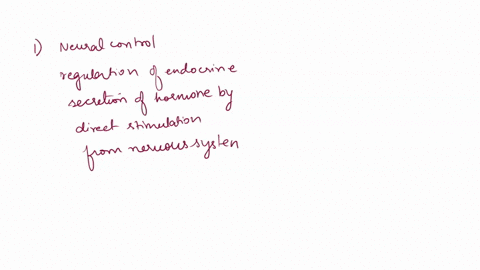 1) Neural control
regulation of endocrine
secretion of hormone by
direct stimulation
from nervous system